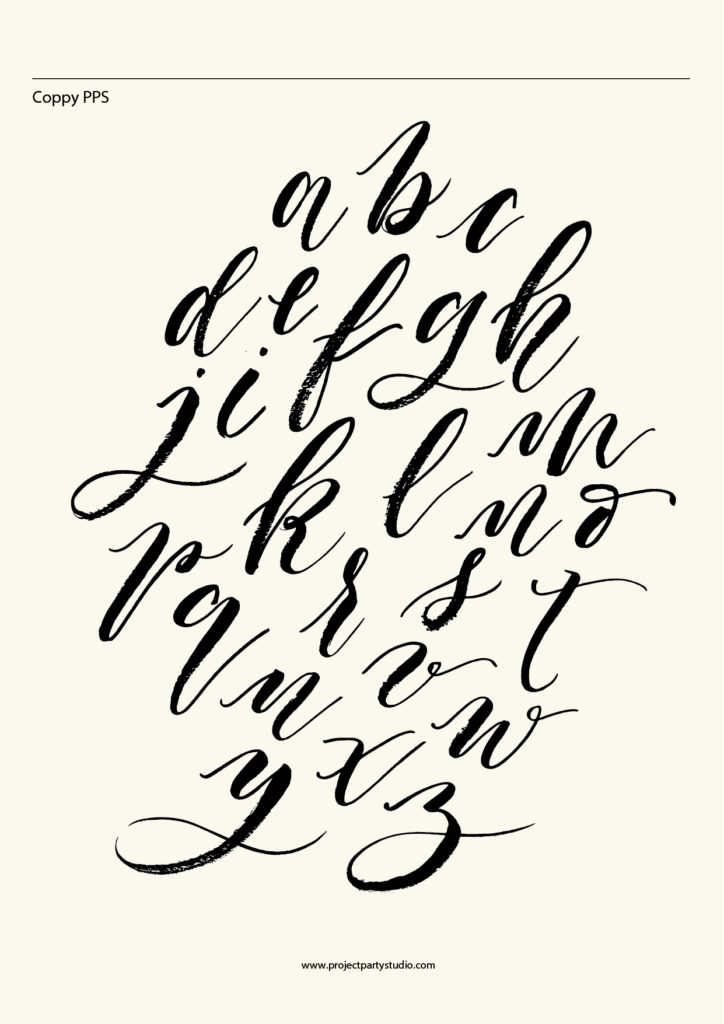 Coppy PPS
a b c
d e f g h
j i
k l m
n o
p q r s t
u v w
y x z
www.projectpartystudio.com